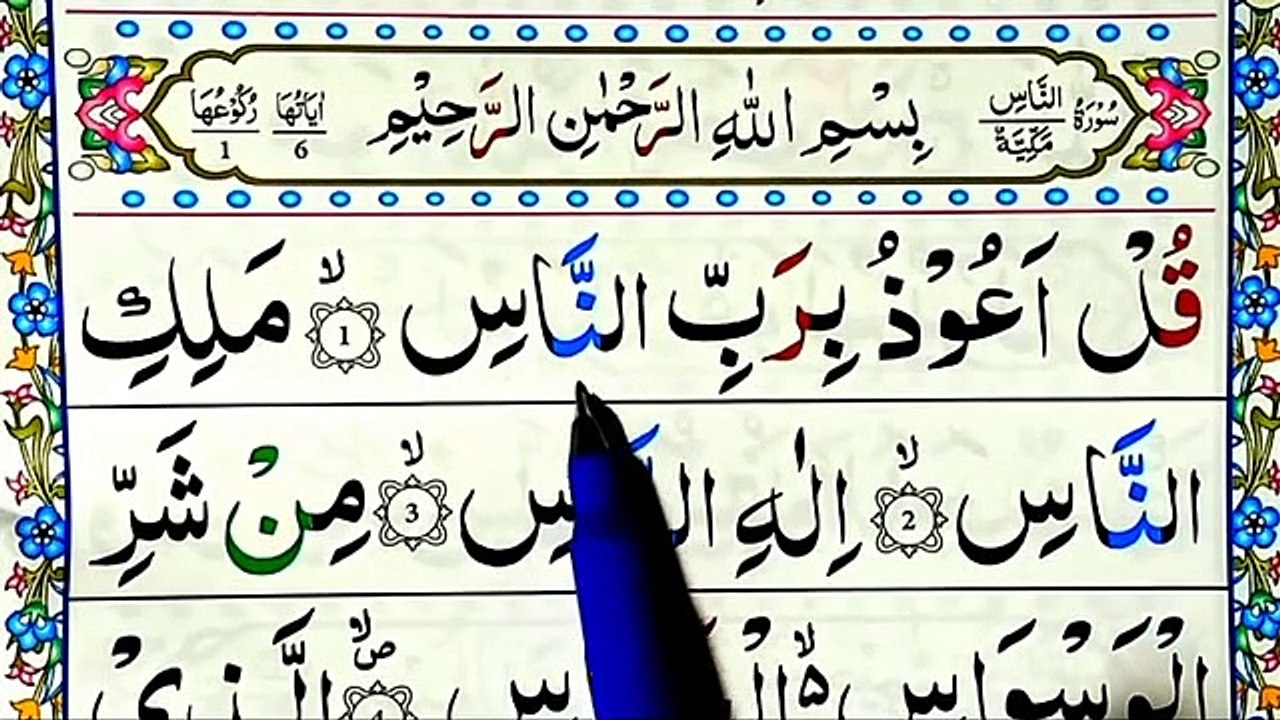 سُوْرَةُ النَّاسِ مَكِّيَّةٌ بِسْمِ اللّٰهِ الرَّحْمٰنِ الرَّحِيْمِ اٰيَاتُهَا 6 رُكُوْعُهَا 1
قُلْ اَعُوْذُ بِرَبِّ النَّاسِ ۙ 1 مَلِكِ
النَّاسِ ۙ 2 اِلٰهِ النَّاسِ ۙ 3 مِنْ شَرِّ
الْوَسْوَاسِ ۵ۙ 4 الَّذِيْ